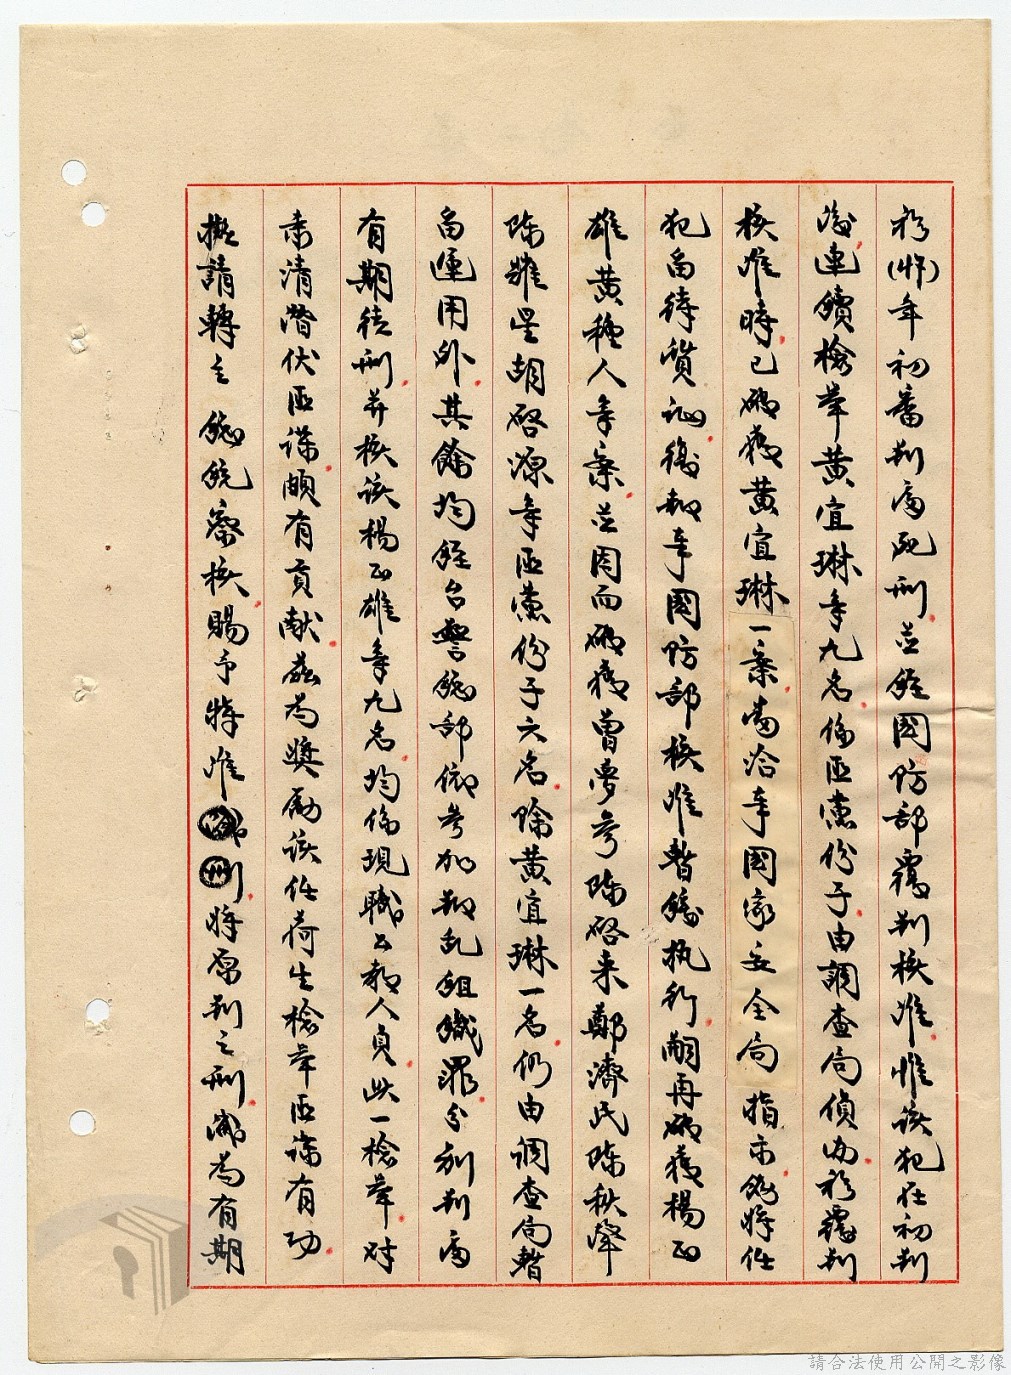 於(卅)年初審判處死刑並經國防部覆判核准惟該犯在初判
後連續檢舉黃宜琳等九名係匪黨份子由調查局偵辦於覆判
核准時已破獲黃宜琳一案當洽奉國家安全局指示飭將任
犯留待質証後報奉國防部核准暫緩執行嗣再破獲楊正
雄黃種人等案並因而破獲曾夢琴陳啓來鄭濟民陳秋
陳耀星胡啓源等匪黨份子六名除黃宜琳一名仍由調查局暫
留運用外其餘均經台警總部依參加叛乱組織罪分別判處
有期徒刑并核該楊正雄等九名均係現職公教人員此一檢舉对
肅清潛伏匪諜頗有貢献茲為奬勵該任荷生檢舉匪諜有功
擬請轉呈總統鑒核賜予特准將原判之刑減為有期
請合法使用公開之影像